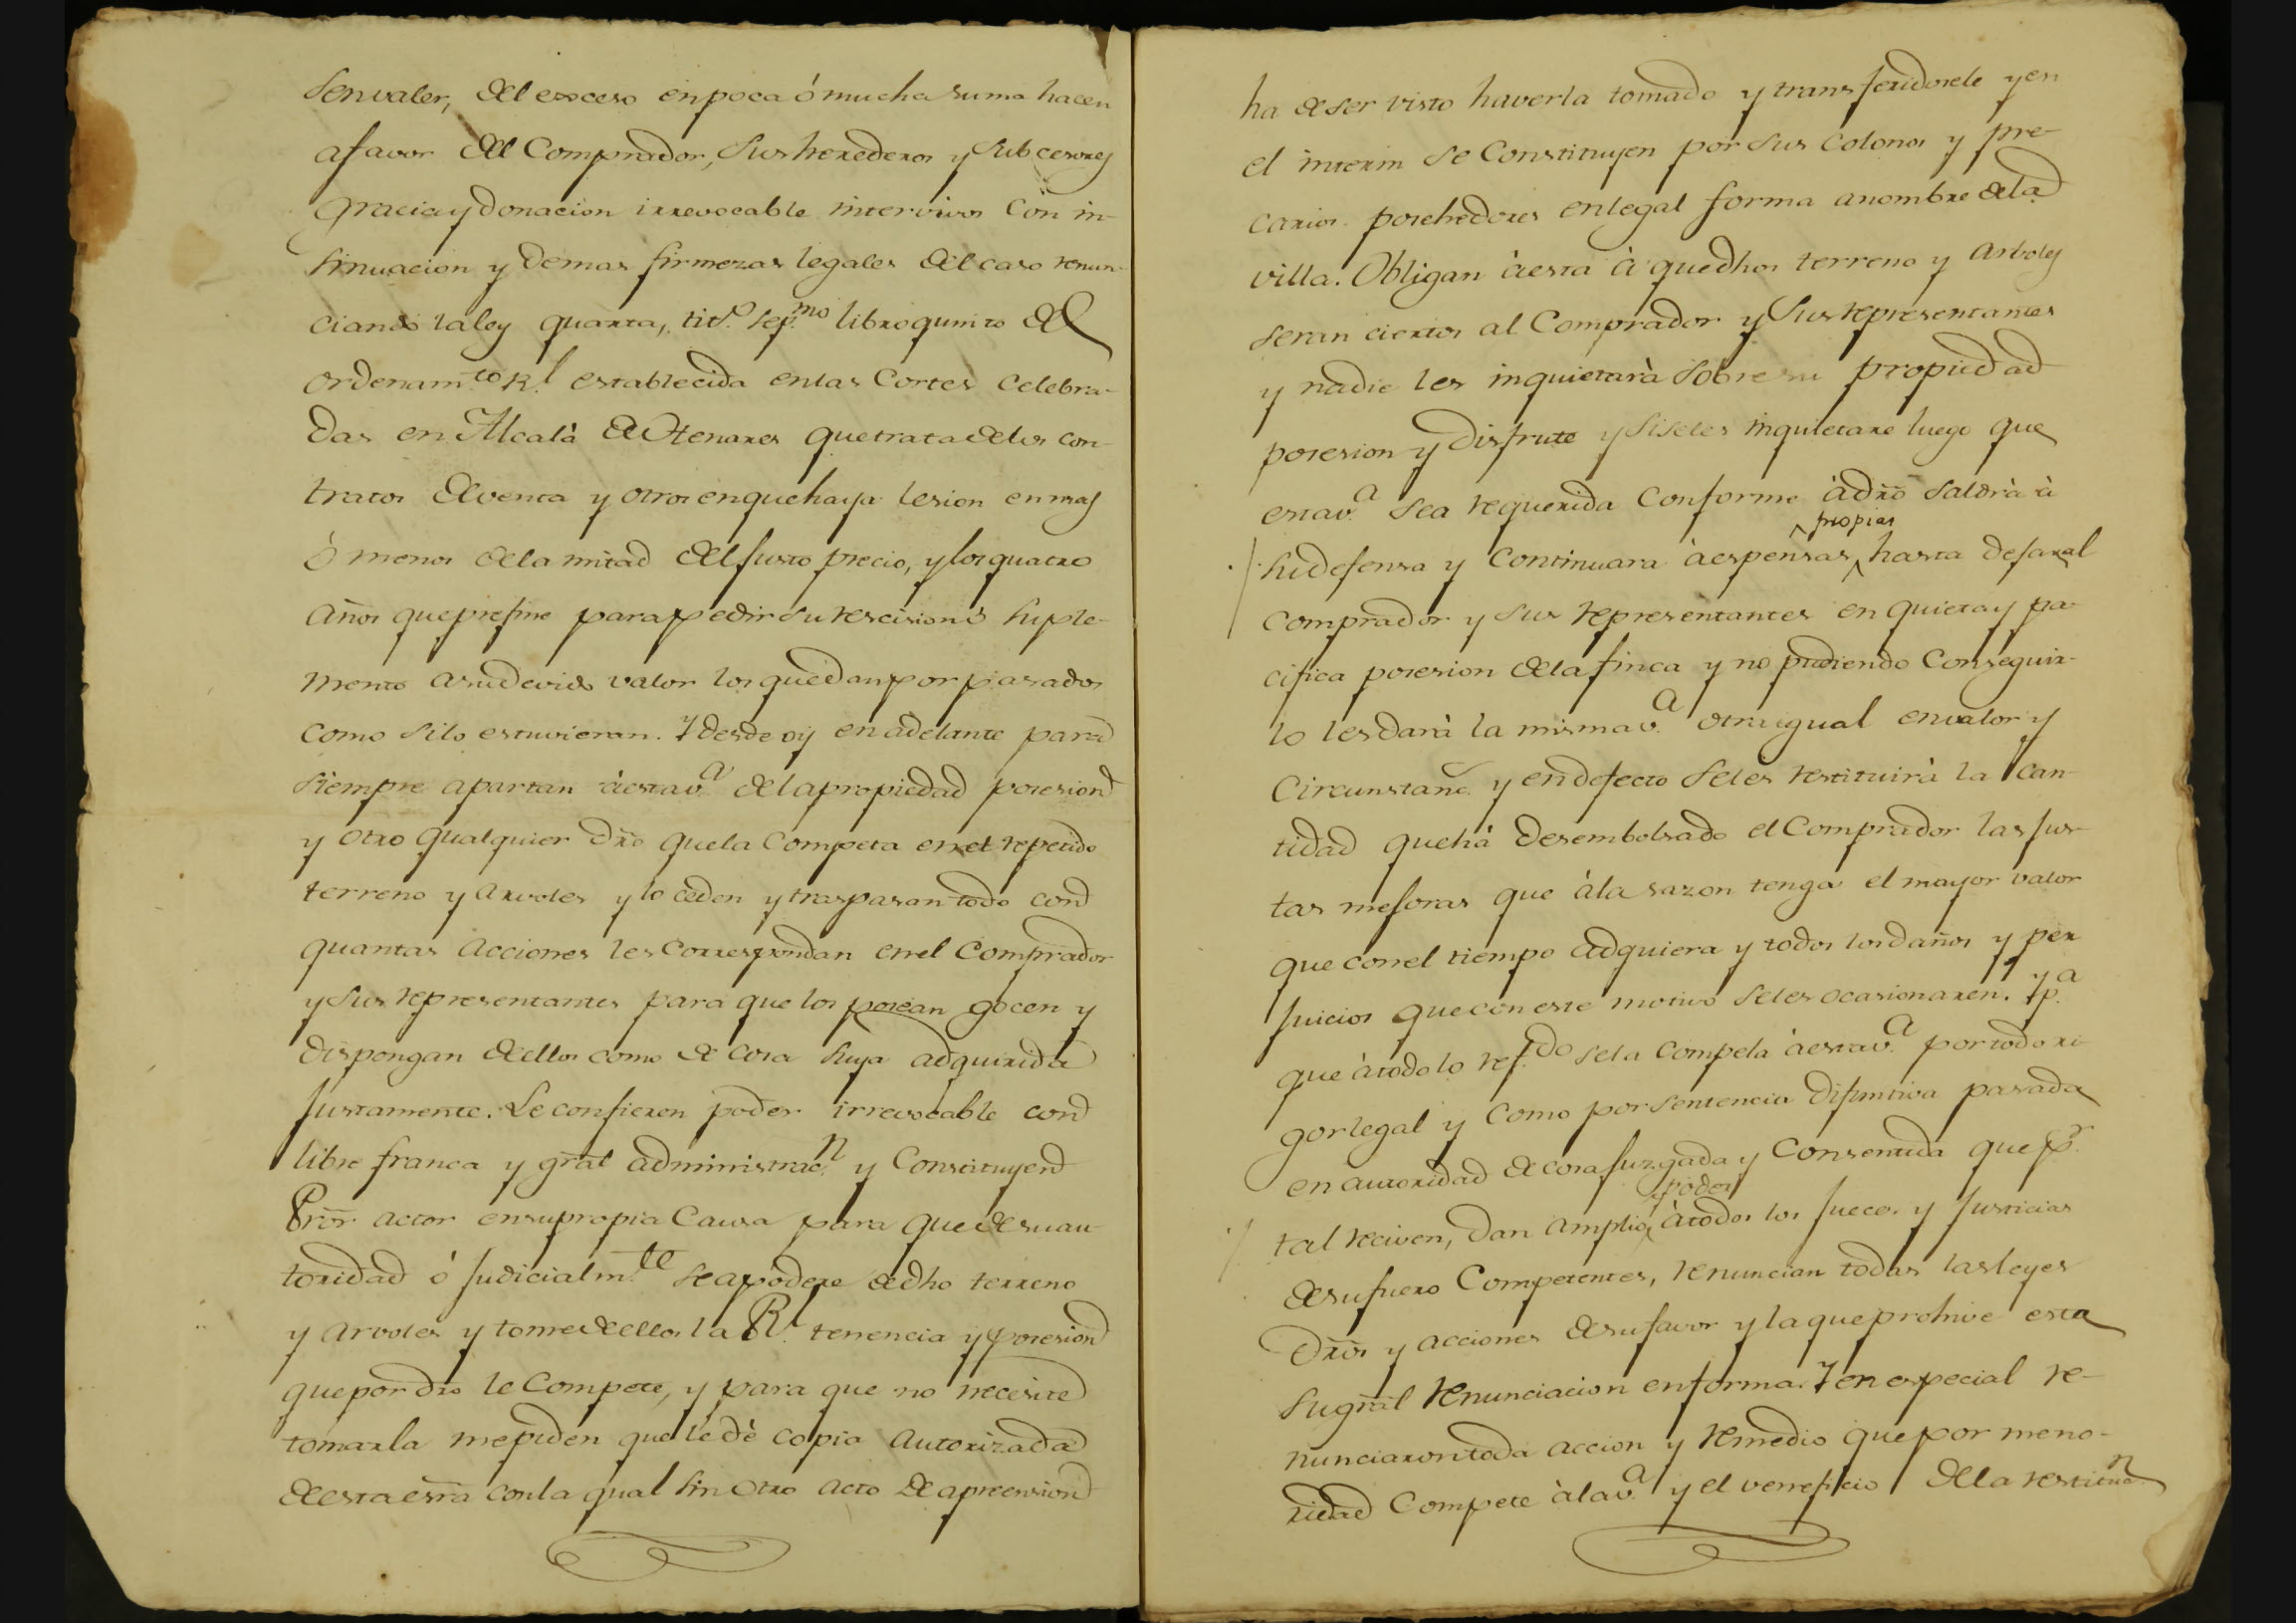 sen valer, del exceso en poca ó mucha suma hacen
a favor del Comprador, sus herederos y subcesores
gracia y donacion irrevocable intervivos con in-
sinuacion y demas firmezas legales del caso renun-
ciando la ley quarta, titº. sepmo libro quinto del
ordenamto. Rl. establecida en las Cortes celebra-
das en Alcalà de Henares que trata de los con-
tratos de venta y otros en que haya lesion en mas
ò menos de la mitad del justo precio, y los quatro
años que prefine para pedir su rescision ò suple-
mento a su devido valor los que dan por pasados
como si lo estuvieran. Y desde oy en adelante para
siempre apartan à esta va. de la propiedad posesion
y otro qualquier dro que la competa en el repetido
terreno y arvoles y lo ceden y traspasan todo con
quantas acciones les correspondan en el Comprador
y sus representantes para que los posean gocen y
dispongan de ellos como de cosa suya adquirida
justamente. Le confieren poder irrevocable con
libre franca y gral administracn. y Constituyen
Pror actor en su propia Causa para que de su au-
toridad ó judicialmte. se apodere de dho terreno
y arvoles y tome de ellos la Rl. tenencia y posesion
que por dro le compete, y para que no necesite
tomarla me piden que le dè copia autorizada
de esta esra con la qual sin otro acto de apreension
ha de ser visto haverla tomado y transferidosele y en
el interin se Constituyen por sus colonos y pre-
carios posehedores en legal forma a nombre de la
villa. Obligan à esta à que dhos terreno y arboles
seran ciertos al Comprador y sus representantes
y nadie les inquietarà sobre su propiedad
posesion y disfrute y si se les inquietare luego que
esta va. sea requerida conforme à dro saldrà à
propias
su defensa y continuara à espensas hasta dejar al
comprador y sus representantes en quieta y pa-
cifica posesion de la finca y no pudiendo conseguir-
lo les darà la misma va. otra igual en valor y
circunstanc. y en defecto se les restituirà la can-
tidad que há desembolsado el Comprador las jus-
tas mejoras que à la sazon tenga el mayor valor
que con el tiempo adquiera y todos los daños y per
juicios que con este motivo se les ocasionaren. Y pa.
que à todo lo refdo. se la compela à esta va. por todo ri-
gor legal y como por sentencia difinitiva pasada
en autoridad de cosa juzgada y consentida que pr.
poder
tal reciven, dan amplio à todos los jueces y justicias
de su fuero competentes, renuncian todas las leyes
dros y acciones de su favor y la que prohive esta
su gral renunciacion en forma. Y en especial re-
nunciaron toda accion y remedio que por meno-
ridad compete à la va. y el veneficio de la restitucn